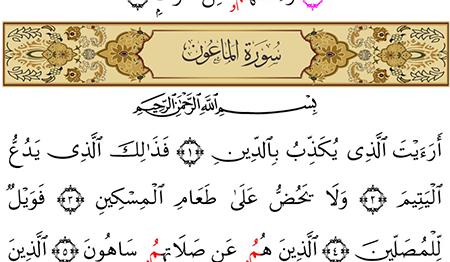 سُورَةُ المَاعُونِ
بِسْمِ اللَّهِ الرَّحْمَٰنِ الرَّحِيمِ
أَرَءَيْتَ ٱلَّذِى يُكَذِّبُ بِٱلدِّينِ ﴿١﴾ فَذَٰلِكَ ٱلَّذِى يَدُعُّ
ٱلْيَتِيمَ ﴿٢﴾ وَلَا يَحُضُّ عَلَىٰ طَعَامِ ٱلْمِسْكِينِ ﴿٣﴾ فَوَيْلٌ
لِّلْمُصَلِّينَ ﴿٤﴾ ٱلَّذِينَ هُمُۥ عَن صَلَاتِهِمُۥ سَاهُونَ ﴿٥﴾ ٱلَّذِينَ